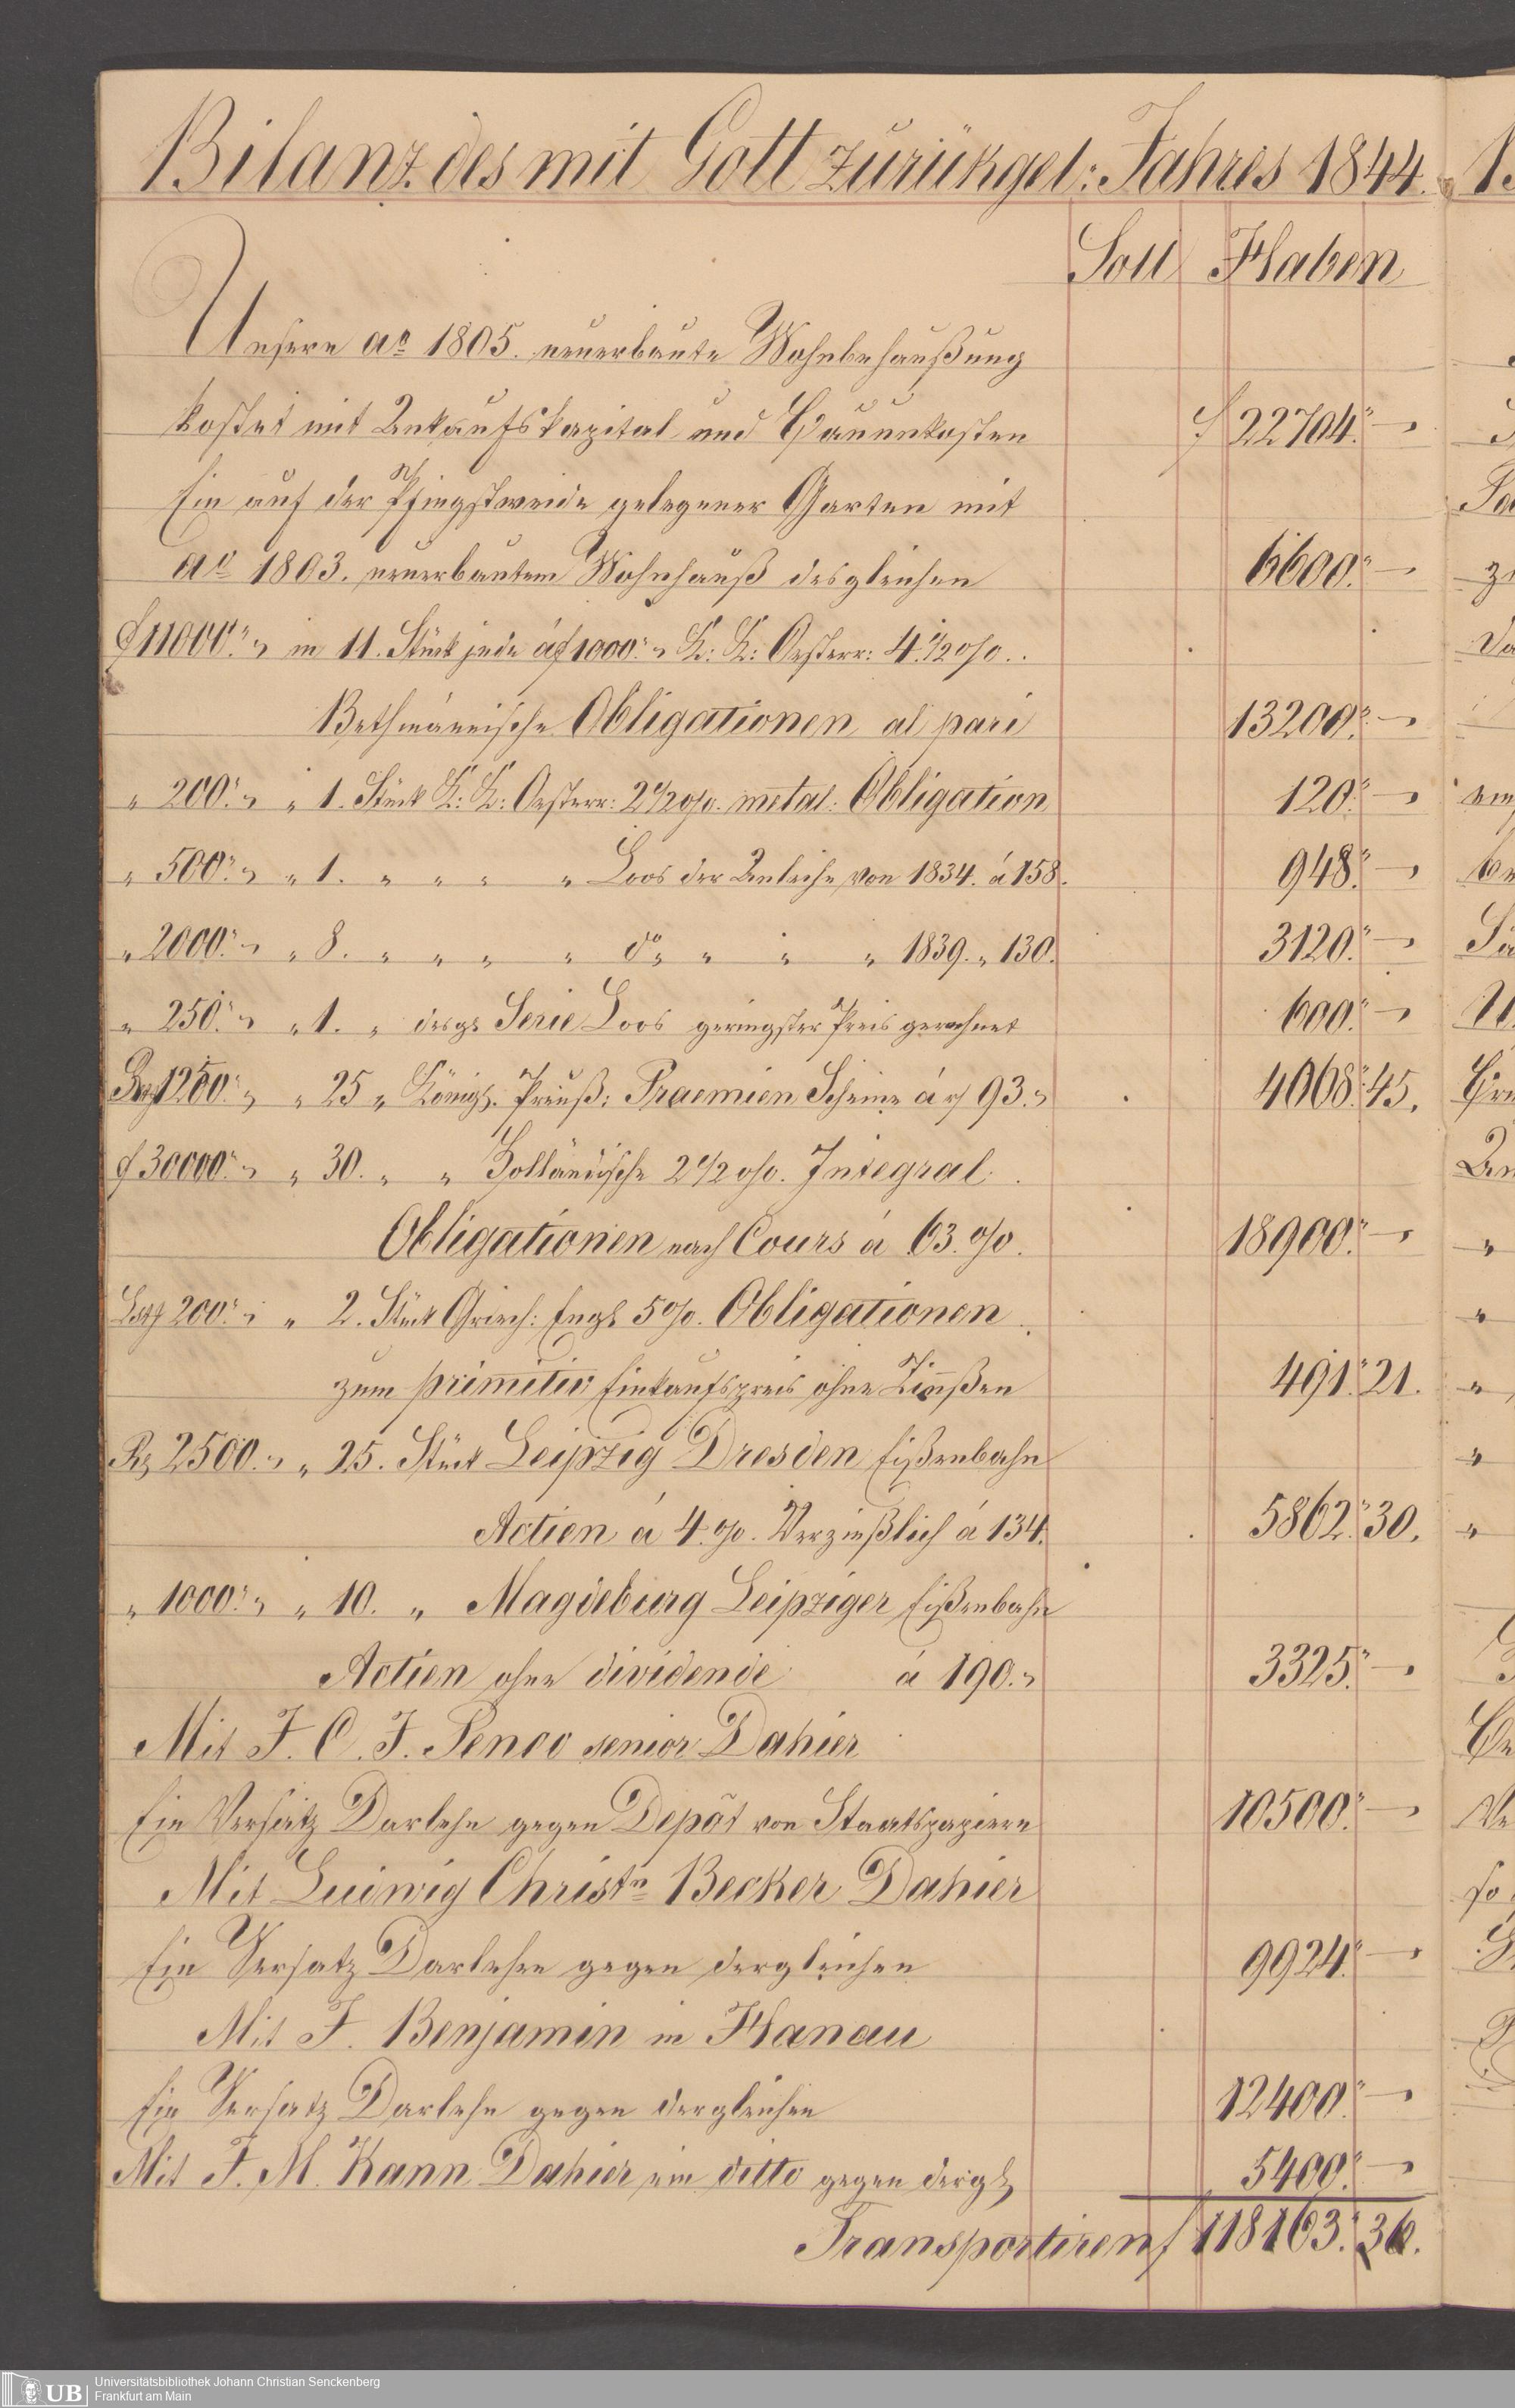 Bilanz des mit Gott zurükgel: Jahres 1844.
Soll Haben
Unsere aº 1805. neuerbaute Wohnbehaußung
kostet mit Ankaufskapital und Bauunkosten f 22704.〃—
Ein auf der Pfingstweide gelegener Garten mit
aº 1803. neuerbautem Wohnhauß desgleichen 6600.〃—
f 11000.〃 in 11. Stück jede á f 1000.〃 K: K: Oesterr: 4.1/2 o/o..
Bethmännische Obligationen al pari 13200.〃—
〃 200.〃 〃 1. Stück K: K: Oesterr: 2 1/2 o/o. metal: Obligation 120.〃—
〃 500.〃 〃 1. 〃 〃 〃 〃 Loos der Anleihe von 1834. á 158. 948.〃—
〃 2000.〃 〃 8. 〃 〃 〃 〃 dº 〃 〃 〃 〃 1839. 〃 130. 3120.〃—
〃 250.〃 〃 1. 〃 desgl Serie Loos geringster Preis gerechnet 600.〃—
1250.〃 〃 25 〃 Königl. Preuß: Praemien Scheine á rf 93.〃 4068.〃45.
f 30000.〃 〃 30. 〃 〃 Holländische 2 1/2 o/o. Integral
Obligationen nach Cours á 63. o/o. 18900.〃—
200.〃 〃 2. Stück Griech: Engl 5 o/o. Obligationen
zum primitiv Einkaufspreis ohne Zinnßen 491.〃21.
R 2500.〃 〃 25. Stück Leipzig Dresden Eißenbahn
Actien á 4. o/o. Verzinßlich á 134. 5862.〃30.
〃 1000.〃 〃 10. 〃 Magdeburg Leipziger Eißenbahn
Actien ohne dividende á 190.〃 3325.〃—
Mit J. C. J. Penco senior Dahier
Ein Versatz Darlehn gegen Depôt von Staatspapiere 10500.〃—
Mit Ludwig Christⁿ Becker Dahier
Ein Versatz Darlehen gegen dergleichen 9924.〃—
Mit J. Benjamin in Hanau
Ein Versatz Darlehn gegen dergleichen 12400.〃—
Mit J. M. Kann Dahier ein ditto gegen dergl 5400.〃—
Transportiren f 118163.〃36.
UB
Universitätsbibliothek Johann Christian Senckenberg
Frankfurt am Main